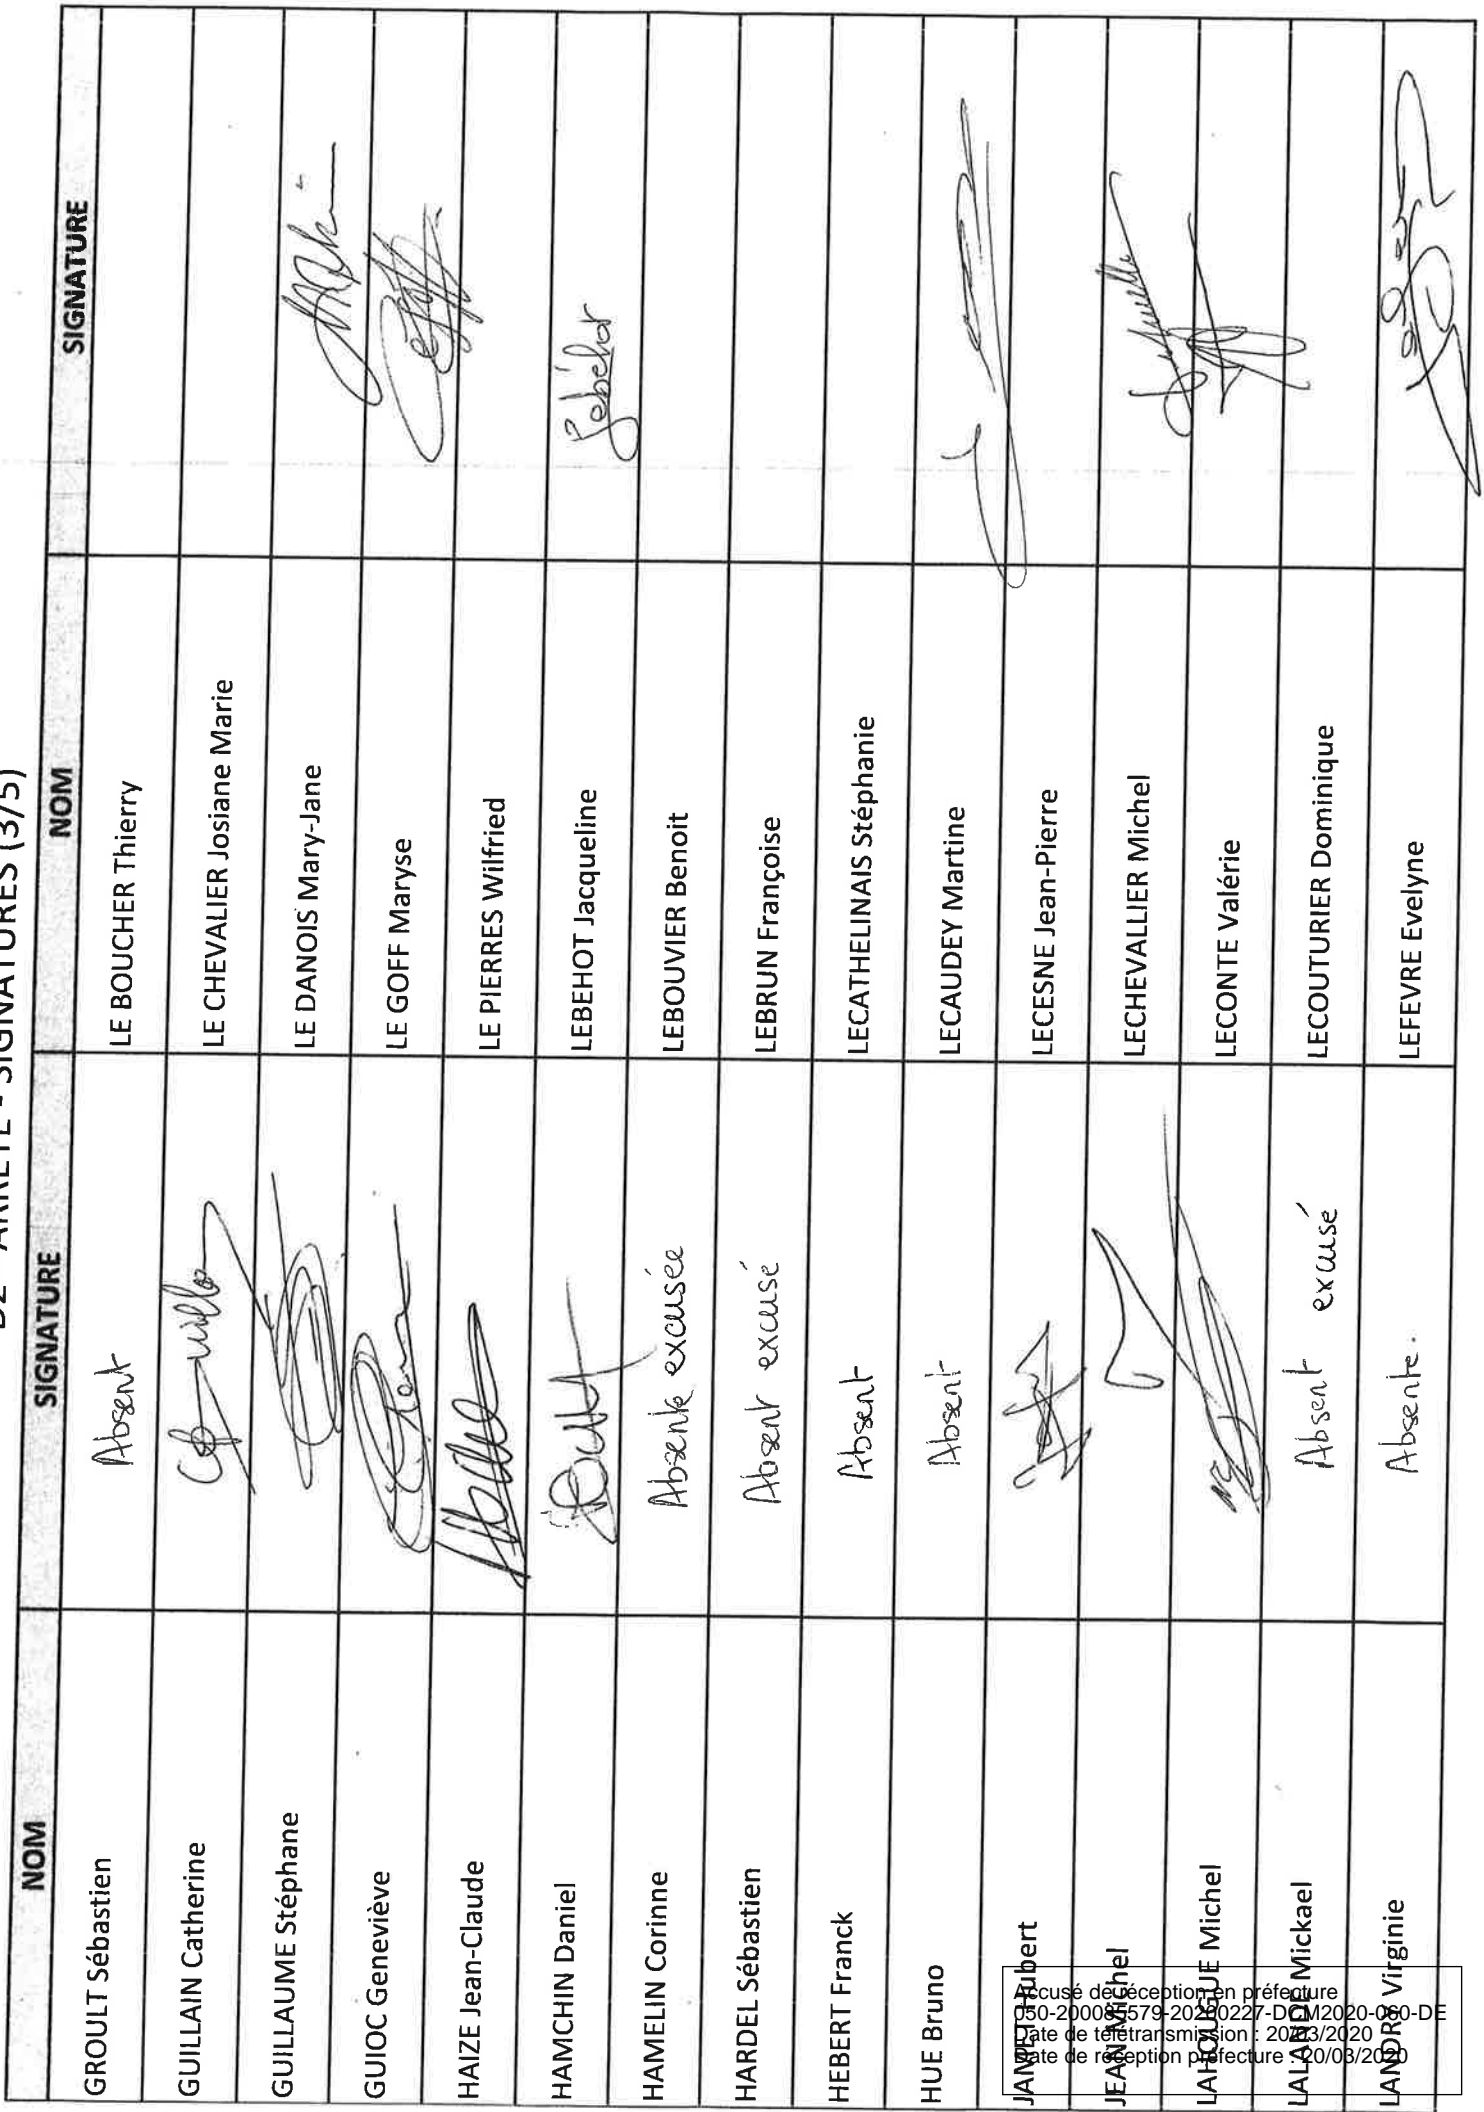 D2 - ARRÊTÉ - SIGNATURES (3/5)
NOM SIGNATURE NOM SIGNATURE
GROULT Sébastien Absent LE BOUCHER Thierry
GUILLAIN Catherine LE CHEVALIER Josiane Marie
GUILLAUME Stéphane LE DANOIS Mary-Jane
GUIOC Geneviève LE GOFF Maryse
HAIZE Jean-Claude LE PIERRES Wilfried
HAMCHIN Daniel LEBEHOT Jacqueline
HAMELIN Corinne Absente excusée LEBOUVIER Benoit
HARDEL Sébastien Absent excusé LEBRUN Françoise
HEBERT Franck Absent LECATHELINAIS Stéphanie
HUE Bruno Absent LECAUDEY Martine
JAMET Hubert LECESNE Jean-Pierre
JEAN Michel LECHEVALLIER Michel
LAHOUGUE Michel LECONTE Valérie
LALANDE Mickael Absent excusé LECOUTURIER Dominique
LANDRY Virginie Absente. LEFEVRE Evelyne
Accusé de réception en préfecture
050-200085579-20200227-DCM2020-030-DE
Date de télétransmission : 20/03/2020
Date de réception préfecture : 20/03/2020